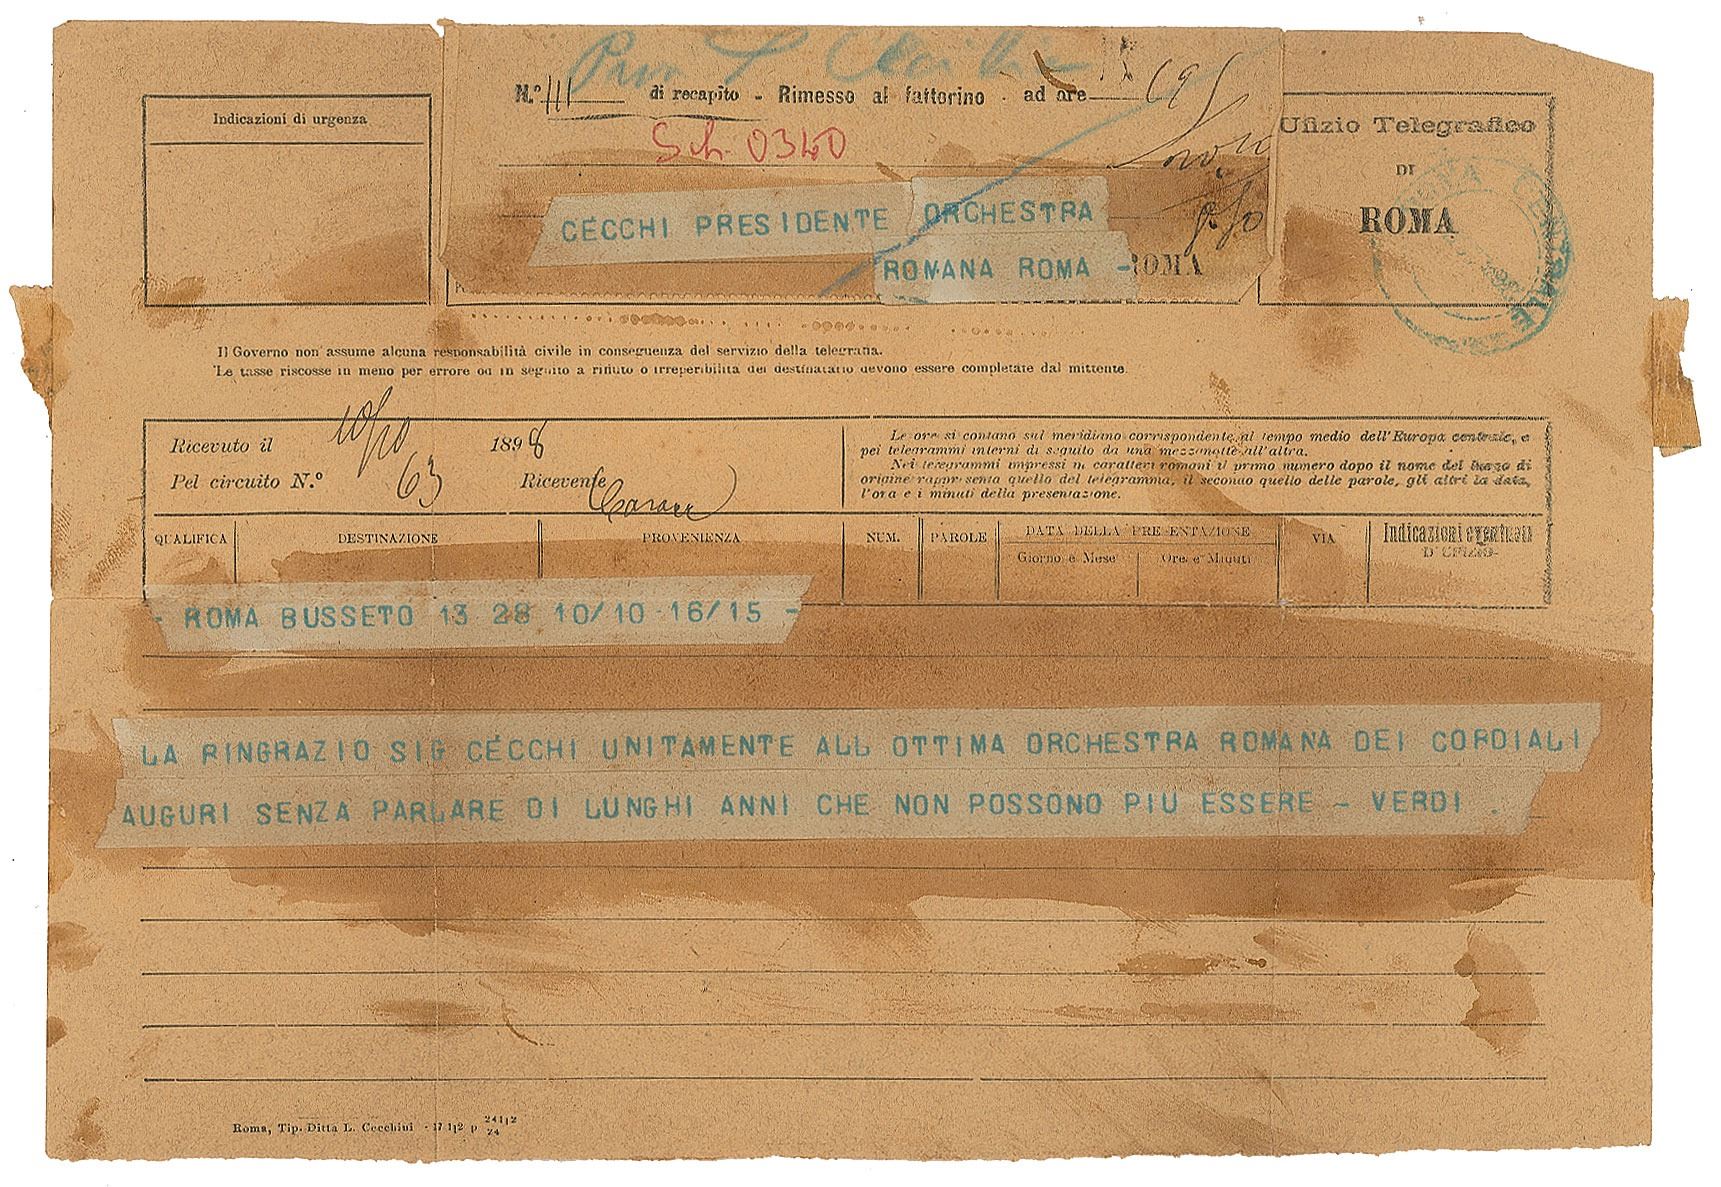 N.° 111 di recapito - Rimesso al fattorino ad ore
Sch 0340
Indicazioni di urgenza
CECCHI PRESIDENTE ORCHESTRA
ROMANA ROMA -
ROMA
Ufizio Telegrafico
DI
ROMA
ROMA CENTRALE
Il Governo non assume alcuna responsabilità civile in conseguenza del servizio della telegrafia.
Le tasse riscosse in meno per errore od in seguito a rifiuto o irreperibilità del destinatario devono essere completate dal mittente.
Ricevuto il 10/10 1898
Pel circuito N.° 63 Ricevente
Le ore si contano sul meridiano corrispondente al tempo medio dell'Europa centrale, e
pei telegrammi interni di seguito da una mezzanotte all'altra.
Nei telegrammi impressi in caratteri romani il primo numero dopo il nome del luogo di
origine rappresenta quello del telegramma, il secondo quello delle parole, gli altri la data,
l'ora e i minuti della presentazione.
QUALIFICA DESTINAZIONE PROVENIENZA NUM. PAROLE DATA DELLA PRESENTAZIONE VIA Indicazioni eventuali
Giorno e Mese Ore e Minuti D'UFIZIO
- ROMA BUSSETO 13 28 10/10 16/15 -
LA RINGRAZIO SIG CECCHI UNITAMENTE ALL OTTIMA ORCHESTRA ROMANA DEI CORDIALI
AUGURI SENZA PARLARE DI LUNGHI ANNI CHE NON POSSONO PIU ESSERE - VERDI .
Roma, Tip. Ditta L. Cecchini - 17 1|2 p 24 1|2
24